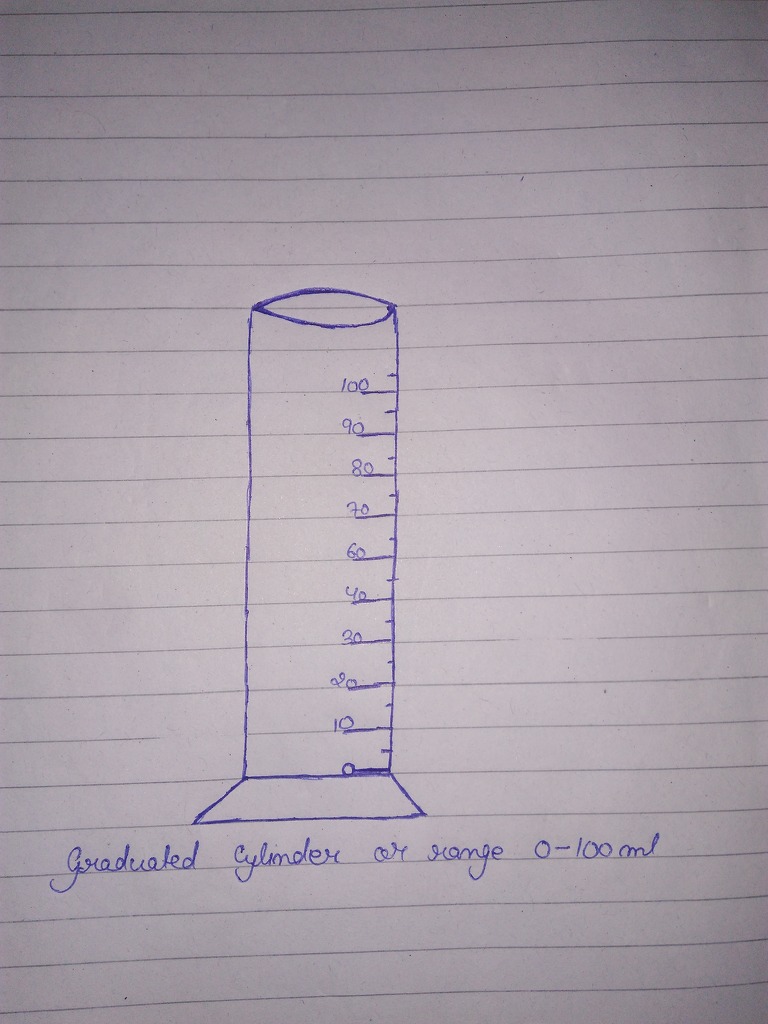 100
90
80
70
60
40
30
20
10
0
Graduated Cylinder or range 0-100 ml